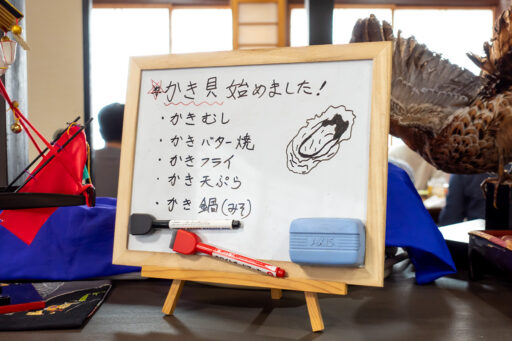 かき貝 始めました!
・かきむし
・かきバター焼
・かきフライ
・かき天ぷら
・かき鍋(みそ)
AXIS